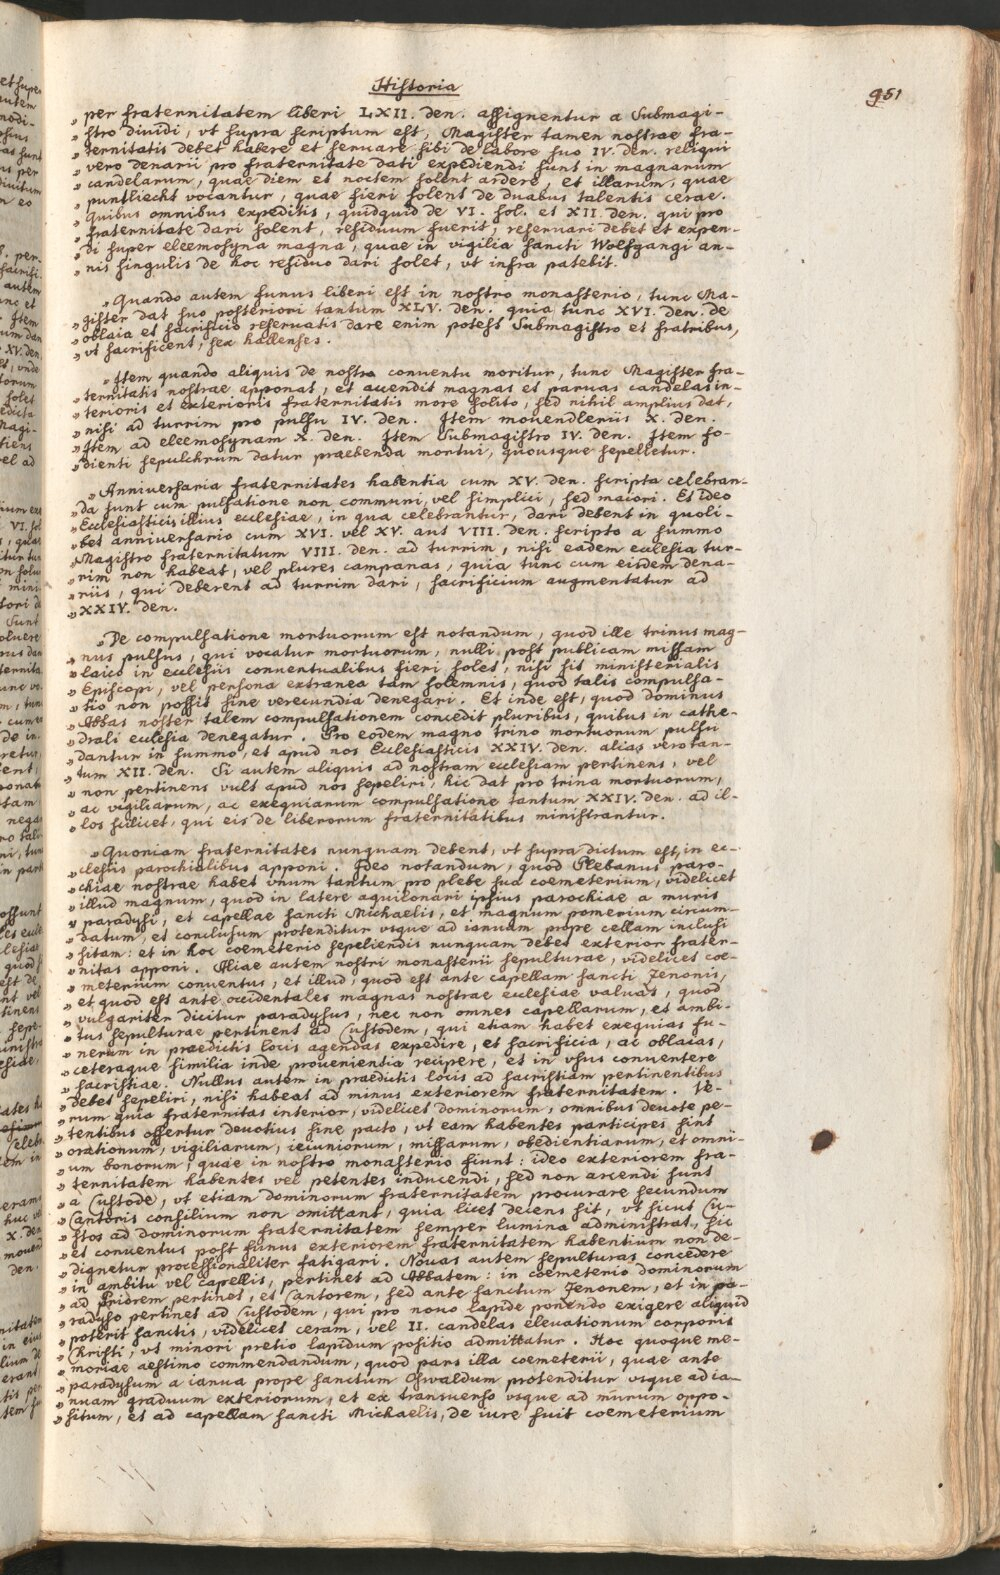 Historia
951
„ per fraternitatem liberi LXII. den. assignentur a Submagi-
„ stro dividi, vt supra scriptum est, Magister tamen nostrae fra-
„ ternitatis debet habere et seruare sibi de labore suo IV. den. reliqui
„ vero denarii pro fraternitate dati expediendi sunt in magnarum
„ candelarum, quae diem et noctem solent ardere, et illarum, quae
„ puntliecht vocantur, quae fieri solent de duabus talentis cerae.
„ Quibus omnibus expeditis, quidquid de VI. sol. et XII. den. qui pro
„ fraternitate dari solent, residuum fuerit, reseruari debet et expen-
„ di super eleemosyna magna, quae in vigilia sancti Wolfgangi an-
„ nis singulis de hoc residuo dari solet, vt infra patebit.
„ Quando autem funus liberi est in nostro monasterio, tunc Ma-
„ gister dat suo posteriori tantum XLV. den. quia tunc XVI. den. de
„ oblaia et sacrificio reseruatis dare enim potest Submagistro et fratribus,
„ vt sacrificent, sex hallenses.
„ Item quando aliquis de nostro conventu moritur, tunc Magister fra-
„ ternitatis nostrae apponat, et accendit magnas et paruas candelas in-
„ terioris et exterioris fraternitatis more solito, sed nihil amplius dat,
„ nisi ad turrim pro pulsu IV. den. Item mouendleriis X. den.
„ Item ad eleemosynam X. den. Item Submagistro IV. den. Item fo-
„ dienti sepulchrum datur praebenda mortui, quousque sepelietur.
„ Anniuersaria fraternitates habentia cum XV. den. scripta celebran-
„ da sunt cum pulsatione non communi, vel simplici, sed maiori. Et ideo
„ Ecclesiasticis illius ecclesiae, in qua celebrantur, dari debent in quoli-
„ bet anniversario cum XVI. vel XV. aut VIII. den. scripto a summo
„ Magistro fraternitatum VIII. den. ad turrim, nisi eadem ecclesia tur-
„ rim non habeat, vel plures campanas, quia tunc cum eisdem dena-
„ riis, qui deberent ad turrim dari, sacrificium augmentatur ad
„ XXIV. den.
„ De compulsatione mortuorum est notandum, quod ille trinus mag-
„ nus pulsus, qui vocatur mortuorum, nulli post publicam missam
„ laico in ecclesiis conventualibus fieri solet, nisi sit ministerialis
„ Episcopi, vel persona extranea tam solemnis, quod talis compulsa-
„ tio non possit sine verecundia denegari. Et inde est, quod dominus
„ Abbas noster talem compulsationem concedit pluribus, quibus in cathe-
„ drali ecclesia denegatur. Pro eodem magno trino mortuorum pulsu
„ dantur in summo, et apud nos Ecclesiasticis XXIV. den. alias vero tan-
„ tum XII. den. Si autem aliquis ad nostram ecclesiam pertinens, vel
„ non pertinens vult apud nos sepeliri, hic dat pro trina mortuorum,
„ ac vigiliarum, ac exequiarum compulsatione tantum XXIV. den. ad il-
„ los scilicet, qui eis de liberorum fraternitatibus ministrantur.
„ Quoniam fraternitates nunquam debent, vt supra dictum est, in ec-
„ clesiis parochialibus apponi. Ideo notandum, quod Plebanus paro-
„ chiae nostrae habet vnum tantum pro plebe sua coemeterium, videlicet
„ illud magnum, quod in latere aquilonari ipsius parochiae a muris
„ paradysi, et capellae sancti Michaelis, et magnum pomerium circum-
„ datum, et conclusum protenditur vsque ad ianuam prope cellam inclusi
„ sitam: et in hoc coemeterio sepeliendis nunquam debet exterior frater-
„ nitas apponi. Aliae autem nostri monasterii sepulturae, videlicet coe-
„ meterium conuentus, et illud, quod est ante capellam sancti Zenonis,
„ et quod est ante occidentales magnas nostrae ecclesiae valuas, quod
„ vulgariter dicitur paradysus, nec non omnes capellarum, et ambi-
„ tus sepulturae pertinent ad Custodem, qui etiam habet exequias fu-
„ nerum in praedictis locis agendas expedire, et sacrificia, ac oblaias,
„ ceteraque similia inde provenientia recipere, et in vsus conuertere
„ sacristiae. Nullus autem in praedictis locis ad sacristiam pertinentibus
„ debet sepeliri, nisi habeat ad minus exteriorem fraternitatem. Ve-
„ rum quia fraternitas interior, videlicet dominorum, omnibus deuote pe-
„ tentibus offertur deuotius sine pacto, vt eam habentes participes sint
„ orationum, vigiliarum, ieiuniorum, missarum, obedientiarum, et omni-
„ um bonorum, quae in nostro monasterio fiunt: ideo exteriorem fra-
„ ternitatem habentes vel petentes inducendi, sed non arcendi sunt
„ a Custode, vt etiam dominorum fraternitatem procurare secundum
„ Cantoris consilium non omittant, quia licet decens sit, vt sicut Cu-
„ stos ad dominorum fraternitatem semper lumina administrat, sic
„ et conuentus post funus exteriorem fraternitatem habentium non de-
„ dignetur processionaliter fatigari. Nouas autem sepulturas concedere
„ in ambitu vel capellis, pertinet ad Abbatem: in coemeterio dominorum
„ ad Priorem pertinet, et Cantorem, sed ante sanctum Zenonem, et in pa-
„ radyso pertinet ad Custodem, qui pro nouo lapide ponendo exigere aliquid
„ poterit sanctis, videlicet ceram, vel II. candelas eleuationum corporis
„ Christi, vt minori pretio lapidum positio admittatur. Hoc quoque me-
„ moriae aestimo commendandum, quod pars illa coemeterii, quae ante
„ paradysum a ianua prope sanctum Oswaldum protenditur vsque ad ia-
„ nuam graduum exteriorum, et ex transuerso vsque ad murum oppo-
„ situm, et ad capellam sancti Michaelis, de iure fuit coemeterium